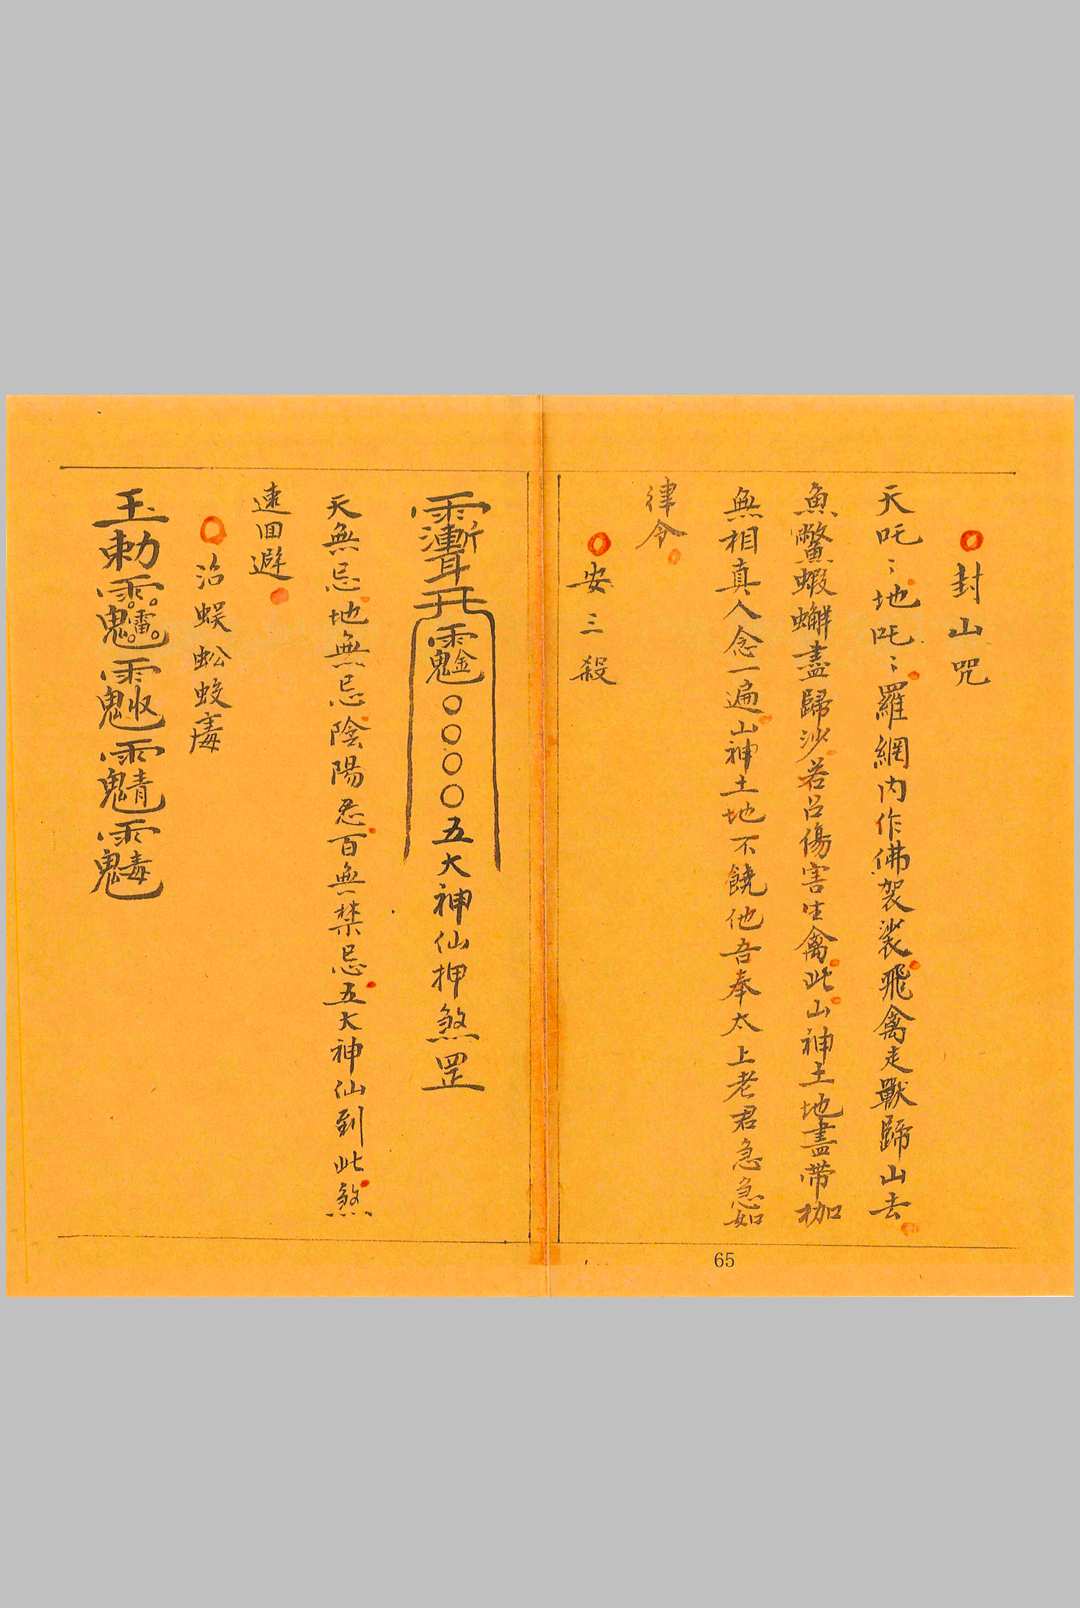 封山咒
天吒〻地吒〻羅網内作佛袈裟飛禽走獸歸山去
魚鱉蝦蠏盡歸沙若吕傷害生禽此山神土地盡帶枷
無相真人念一遍山神土地不饒他吾奉太上老君急急如
律令
安三殺
〇〇〇〇五大神仙押煞罡
天無忌地無忌陰陽忌百無禁忌五大神仙到此煞
速回避
治蜈蚣蛟毒
玉勅
65